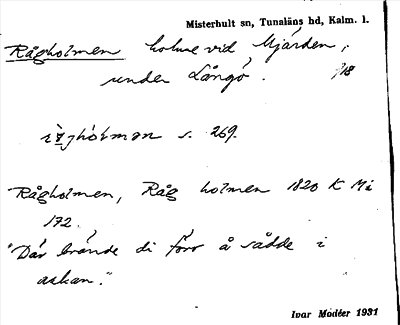 Misterhult sn, Tunaläns hd, Kalm. l.
Rågholmen holme vid Mjärden,
under Långö. 718
s. 269.
Rågholmen, Råg holmen 1820 K Mi
172.
"Där brände di förr å sådde i
askan."
Ivar Modéer 1931